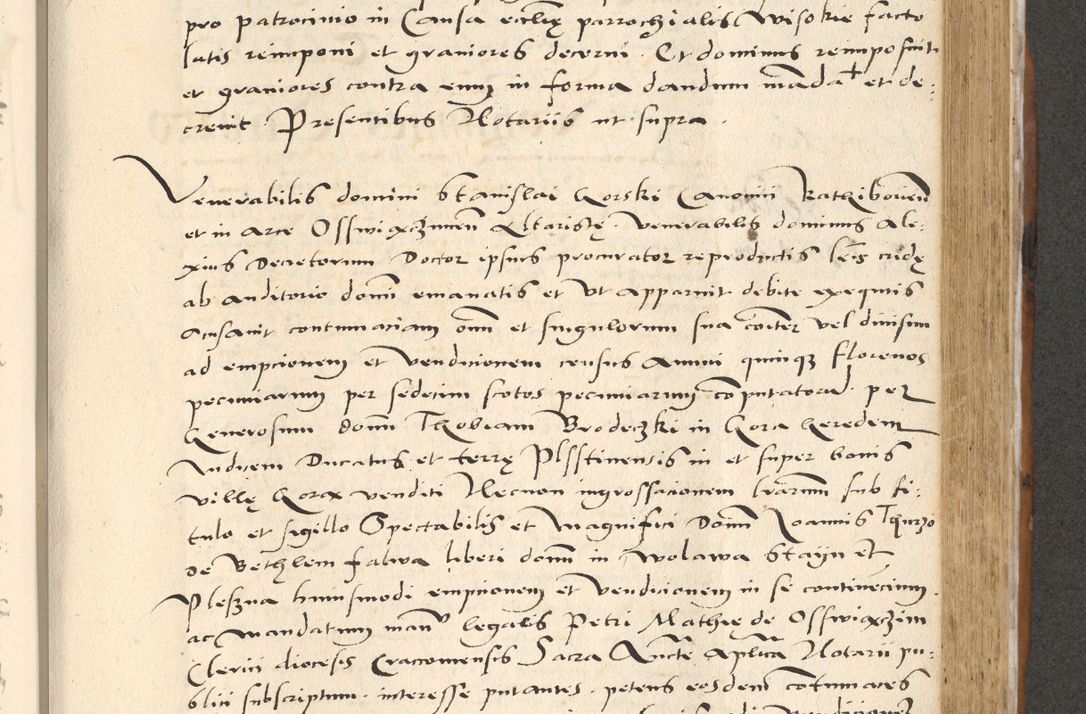 pro patrocinio in Causa eccl̄ię parrochialis Wisokie facto
latis reimponi et graviores decerni. Et dominus reimposuit
et graviores contra eum in forma dandum māda⁺ et de:
crevit Presentibus Notariis ut supra.
Venerabilis domini Stanislai Gorski Canonici Rathiboriēn
et in arce Osswiaczimeñ Altaristę. Venerabilis dominus Ale:
xius Decretorum Doctor ipsius procurator reproductis lr̄is cridę
ab auditorio domī emanatis et ut apparuit debite exequutis
acusavit contumaciam om̄ et singulorum sua cōiter vel divisim
ad empcionem et vendicionem census annui quinqz florenos
pecuniarum per sedecim scotos pecuniarum cōputatorū per
Generosum domī Thobiam Brodeczki in Gora heredem
Iudicem Ducatus et terrę Plsstinensis in et super bonis
villę Gora venditi Necnon ingrossacionem lrārum sub ti:
tulo et sigillo Spectabilis et Magnifici Domī Joannis Thurzo
de Bethlem falwa liberi domī in Wolawa Stayn et
Plessna huiusmodi empcionem et vendicionem in se continēcium.
ac mandatum man⁹ legalis Petri Mathie de Osswiaczim
Clerici diocesis Cracoviensis Sacra Aucte Aplica Notarii pu:
blici subscriptum. interesse putantes. petens eosdem cōtumaces